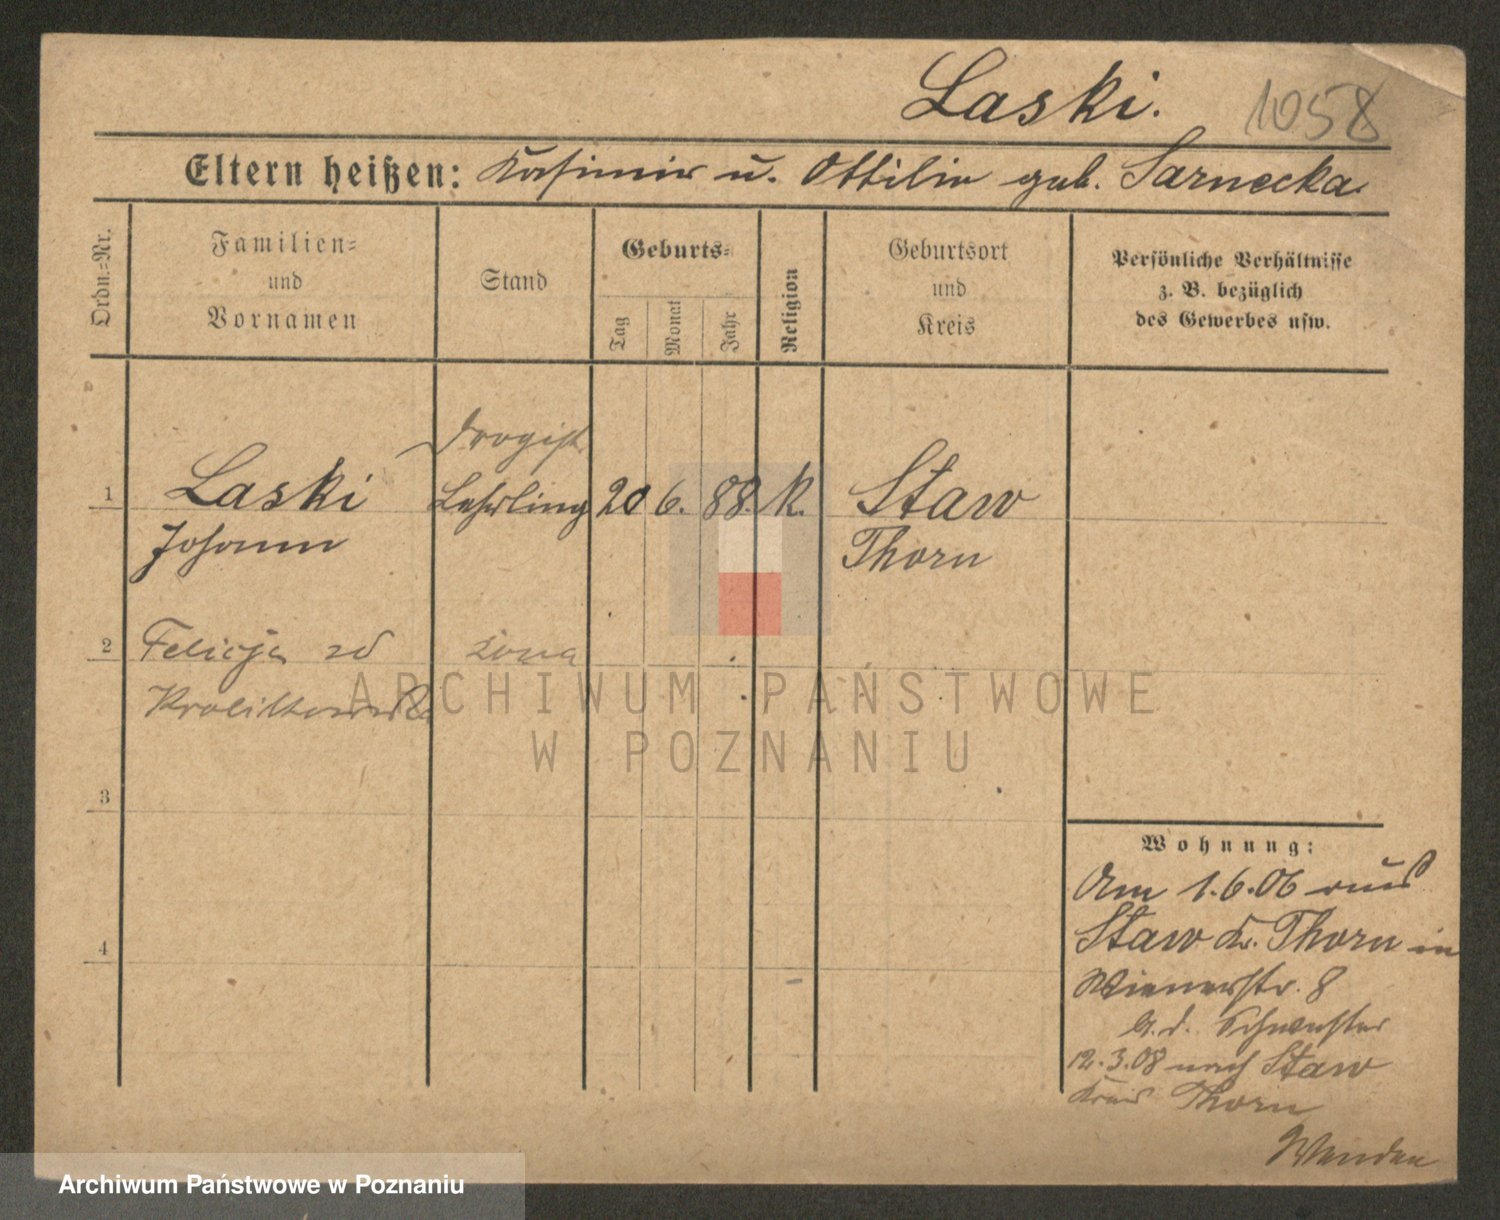 Laski. 1058
Eltern heißen: Kasimir u. Ottilie geb. Sarnecka
Ordn.=Nr.
Familien=
und
Vornamen
Stand
Geburts=
Tag
Monat
Jahr
Religion
Geburtsort
und
Kreis
Persönliche Verhältnisse
z. B. bezüglich
des Gewerbes usw.
Drogist
1 Laski Lehrling 20 6. 88. k. Staw
Johann Thorn
2 Felicja zd żona
Krolikowska
3
4
Wohnung:
Am 1.6.06 aus
Staw Kr. Thorn in
Wienerstr. 8
b. d. Schwester
12.3.08 nach Staw
Kreis Thorn
ARCHIWUM PAŃSTWOWE
W POZNANIU
Archiwum Państwowe w Poznaniu